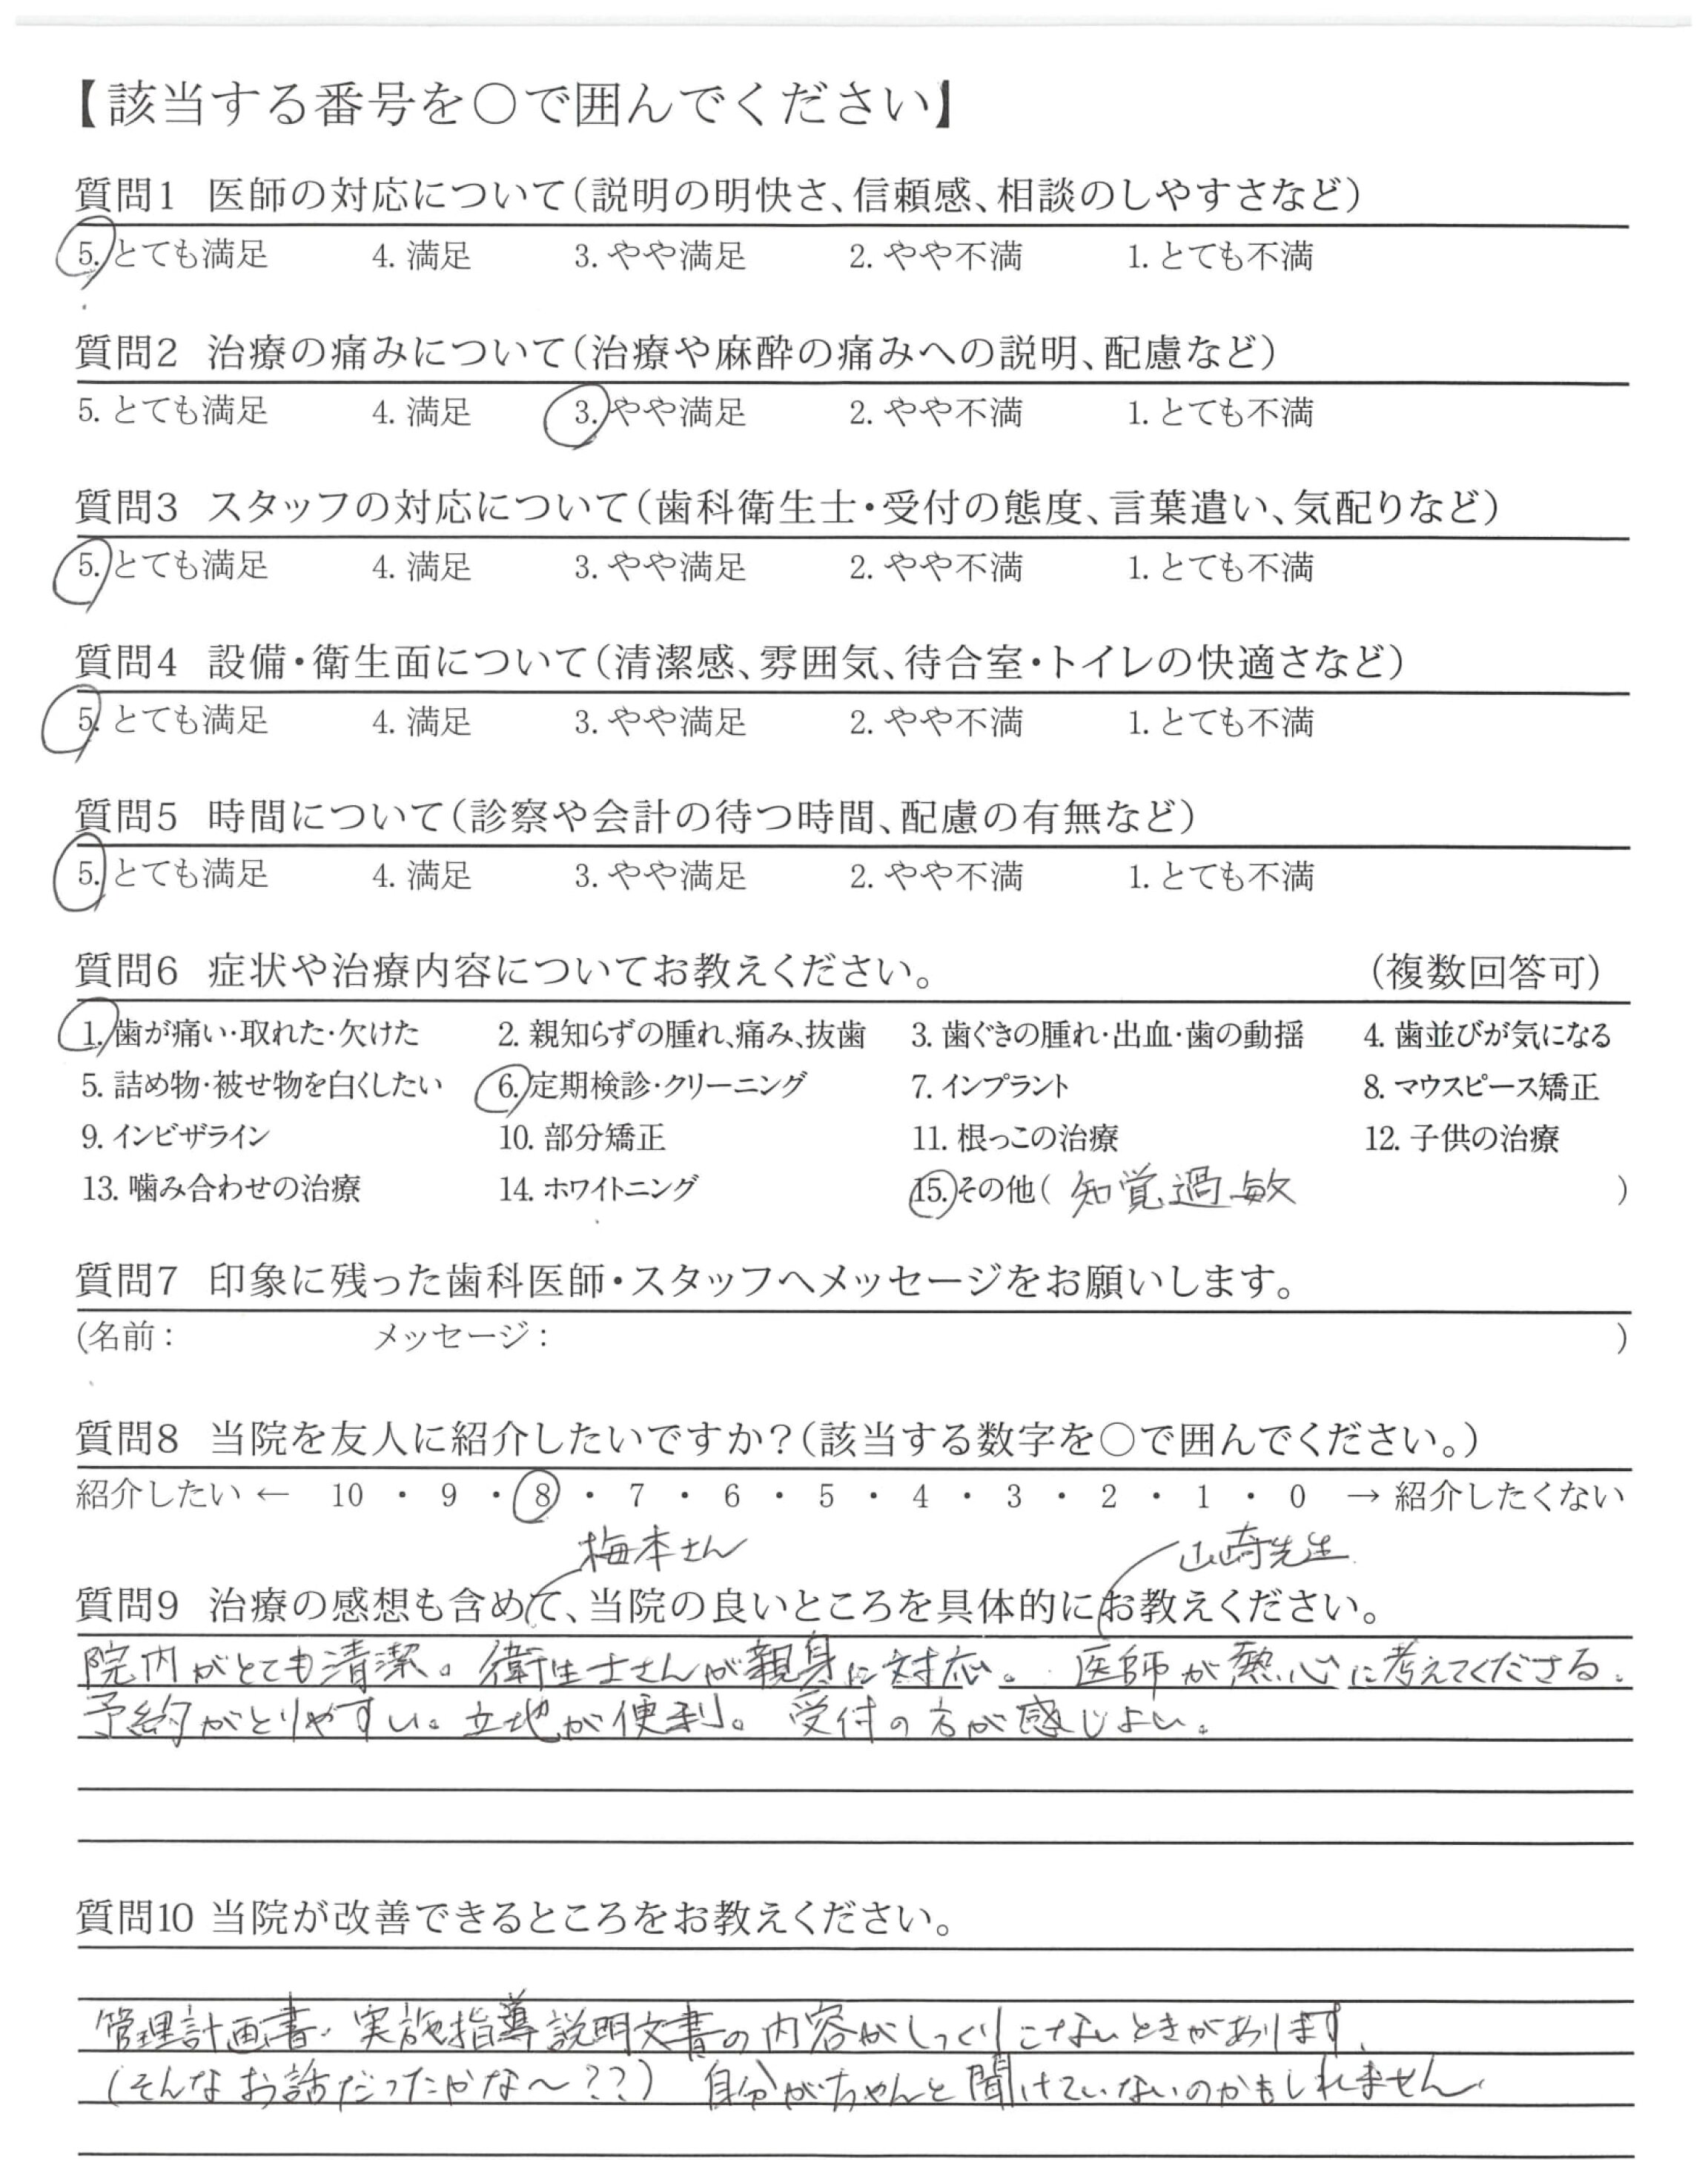 【該当する番号を○で囲んでください】
質問1 医師の対応について(説明の明快さ、信頼感、相談のしやすさなど)
5. とても満足 4. 満足 3. やや満足 2. やや不満 1. とても不満
質問2 治療の痛みについて(治療や麻酔の痛みへの説明、配慮など)
5. とても満足 4. 満足 3. やや満足 2. やや不満 1. とても不満
質問3 スタッフの対応について(歯科衛生士・受付の態度、言葉遣い、気配りなど)
5. とても満足 4. 満足 3. やや満足 2. やや不満 1. とても不満
質問4 設備・衛生面について(清潔感、雰囲気、待合室・トイレの快適さなど)
5. とても満足 4. 満足 3. やや満足 2. やや不満 1. とても不満
質問5 時間について(診察や会計の待つ時間、配慮の有無など)
5. とても満足 4. 満足 3. やや満足 2. やや不満 1. とても不満
質問6 症状や治療内容についてお教えください。 (複数回答可)
1. 歯が痛い・取れた・欠けた 2. 親知らずの腫れ、痛み、抜歯 3. 歯ぐきの腫れ・出血・歯の動揺 4. 歯並びが気になる
5. 詰め物・被せ物を白くしたい 6. 定期検診・クリーニング 7. インプラント 8. マウスピース矯正
9. インビザライン 10. 部分矯正 11. 根っこの治療 12. 子供の治療
13. 噛み合わせの治療 14. ホワイトニング 15. その他( 知覚過敏 )
質問7 印象に残った歯科医師・スタッフへメッセージをお願いします。
(名前: メッセージ: )
質問8 当院を友人に紹介したいですか?(該当する数字を○で囲んでください。)
紹介したい ← 10 ・ 9 ・ 8 ・ 7 ・ 6 ・ 5 ・ 4 ・ 3 ・ 2 ・ 1 ・ 0 → 紹介したくない
梅本さん 山崎先生
質問9 治療の感想も含めて、当院の良いところを具体的にお教えください。
院内がとても清潔。衛生士さんが親身に対応。 医師が熱心に考えてくださる。
予約がとりやすい。立地が便利。 受付の方が感じよい。
質問10 当院が改善できるところをお教えください。
管理計画書・実施指導説明文書の内容がしっくりこないときがあります。
(そんなお話だったかな〜??) 自分がちゃんと聞けていないのかもしれません